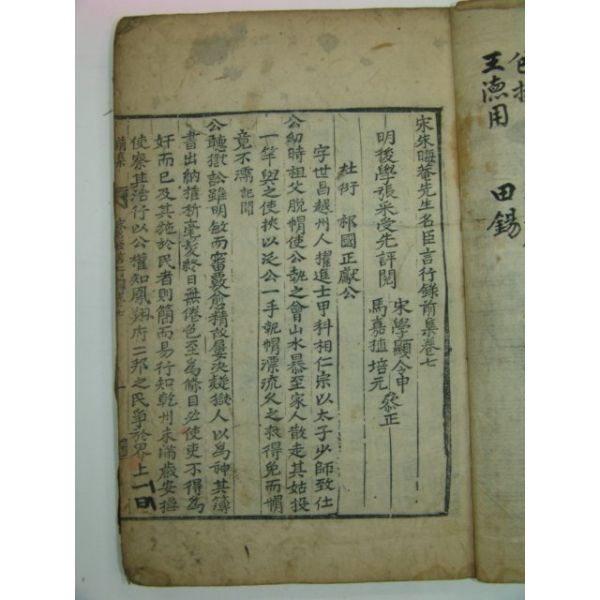 王德用
田錫
宋朱晦菴先生名臣言行錄前集卷七
明後學張采受先評閱
宋學顯令申
馬嘉植培元
叅正
杜衍 祁國正獻公
字世昌越州人擢進士甲科相仁宗以太子少師致仕
公幼時祖父脫帽使公執之會山水暴至家人散走其姑投
一竿與之使挾以泛公一手執帽漂流久之救得免而帽
竟不濡 記聞
公聽獄訟雖明敏而審覈愈精故屢決疑獄人以爲神其簿
書出納推析毫髮終日無倦色至爲條目必使吏不得爲
奸而已及其施於民者則簡而易行知乾州未滿歲安撫
使察其治行以公權知鳳翔府二邦之民爭於界上一曰
前集